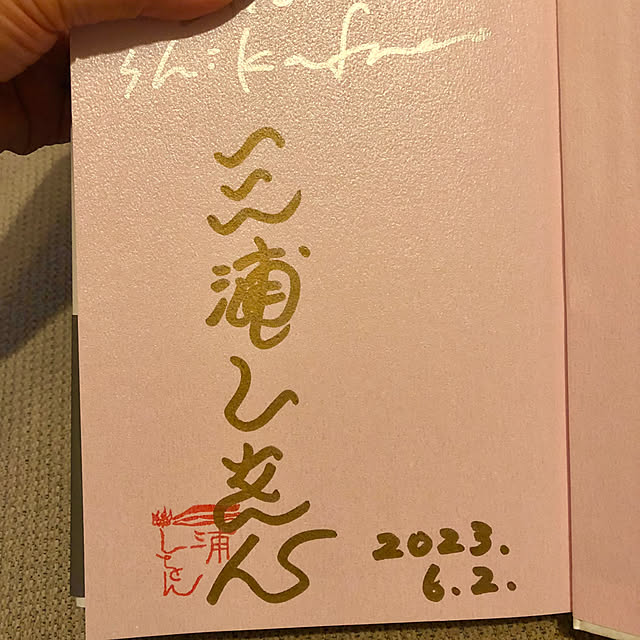 三浦しをん
三浦
しをん
2023.
6.2.